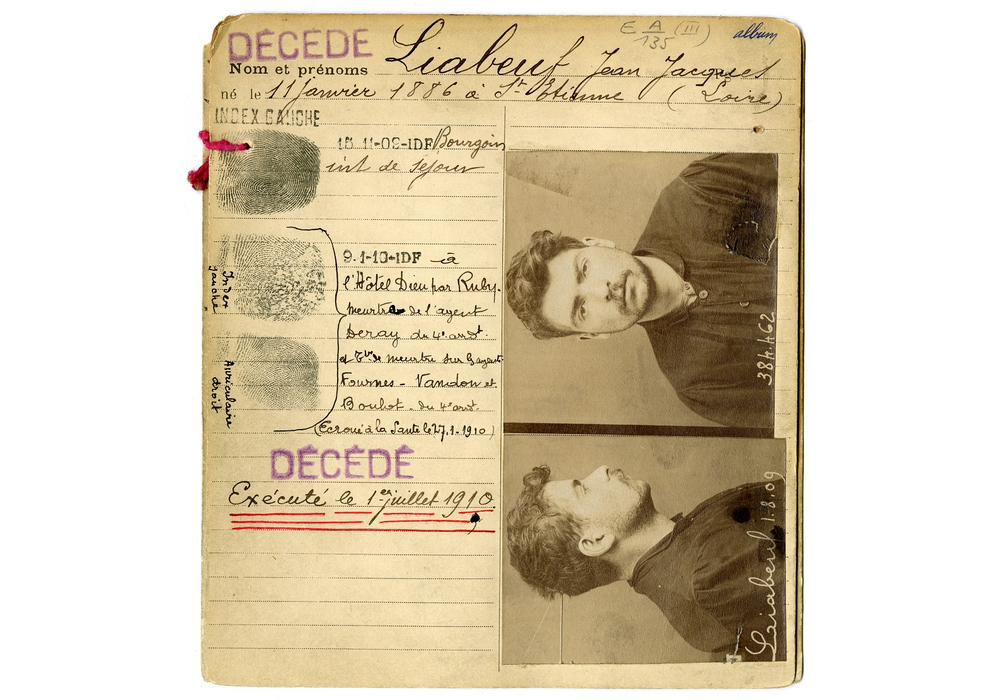 DÉCÉDÉ
E A (III)
135
album
Nom et prénoms Liabeuf Jean Jacques
né le 11 janvier 1886 à St Etienne (Loire)
INDEX GAUCHE
-IDF Bourgoin
int de séjour
Index gauche
Auriculaire droit
9.1-10-IDF à
l'Hôtel Dieu par Ruby.
meurtre de l'agent
Deray du 4e arrdt.
et Tve de meurtre sur
Fournes - Vandon et
Boulot. du 4e arrdt.
(Ecroué à la Santé le 27.1.1910)
DÉCÉDÉ
Exécuté le 1er juillet 1910.
384.462
Liabeuf 1.8.09